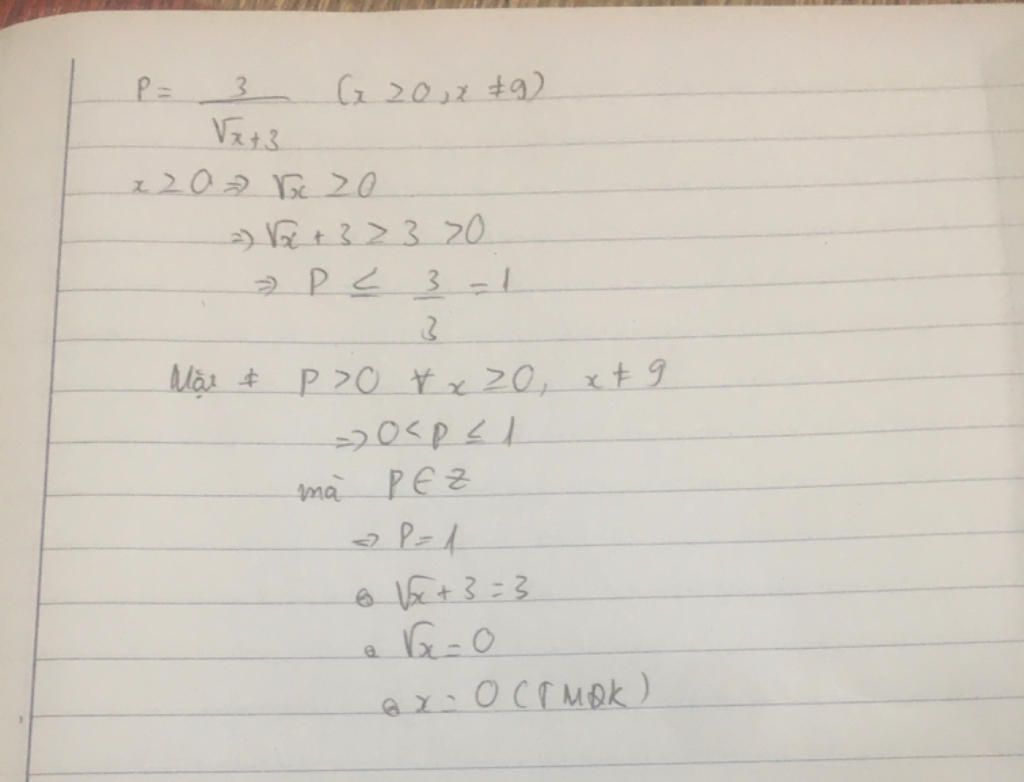 P = 3/(√x + 3) (x ≥ 0, x ≠ 9)
x ≥ 0 ⇒ √x ≥ 0
⇒ √x + 3 ≥ 3 > 0
⇒ P ≤ 3/3 = 1
Mặt ≠ P > 0 ∀ x ≥ 0, x ≠ 9
⇒ 0 < P ≤ 1
mà P ∈ Z
⇒ P = 1
⇔ √x + 3 = 3
⇔ √x = 0
⇔ x = 0 (TMĐK)